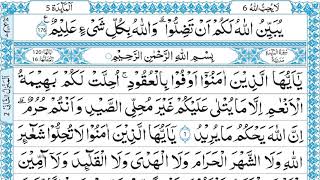 المآئدة 5
لا يحب الله 6
يُبَيِّنُ اللّٰهُ لَكُمْ اَنْ تَضِلُّوْا ؕ وَاللّٰهُ بِكُلِّ شَیْءٍ عَلِيْمٌ
بِسْمِ اللّٰهِ الرَّحْمٰنِ الرَّحِيْمِ
يٰۤاَيُّهَا الَّذِيْنَ اٰمَنُوْۤا اَوْفُوْا بِالْعُقُوْدِ ؕ اُحِلَّتْ لَكُمْ بَهِيْمَةُ
الْاَنْعَامِ اِلَّا مَا يُتْلٰى عَلَيْكُمْ غَيْرَ مُحِلِّى الصَّيْدِ وَاَنْتُمْ حُرُمٌ ؕ
اِنَّ اللّٰهَ يَحْكُمُ مَا يُرِيْدُ يٰۤاَيُّهَا الَّذِيْنَ اٰمَنُوْا لَا تُحِلُّوْا شَعَآئِرَ
اللّٰهِ وَلَا الشَّهْرَ الْحَرَامَ وَلَا الْهَدْىَ وَلَا الْقَلَآئِدَ وَلَاۤ آٰمِّيْنَ